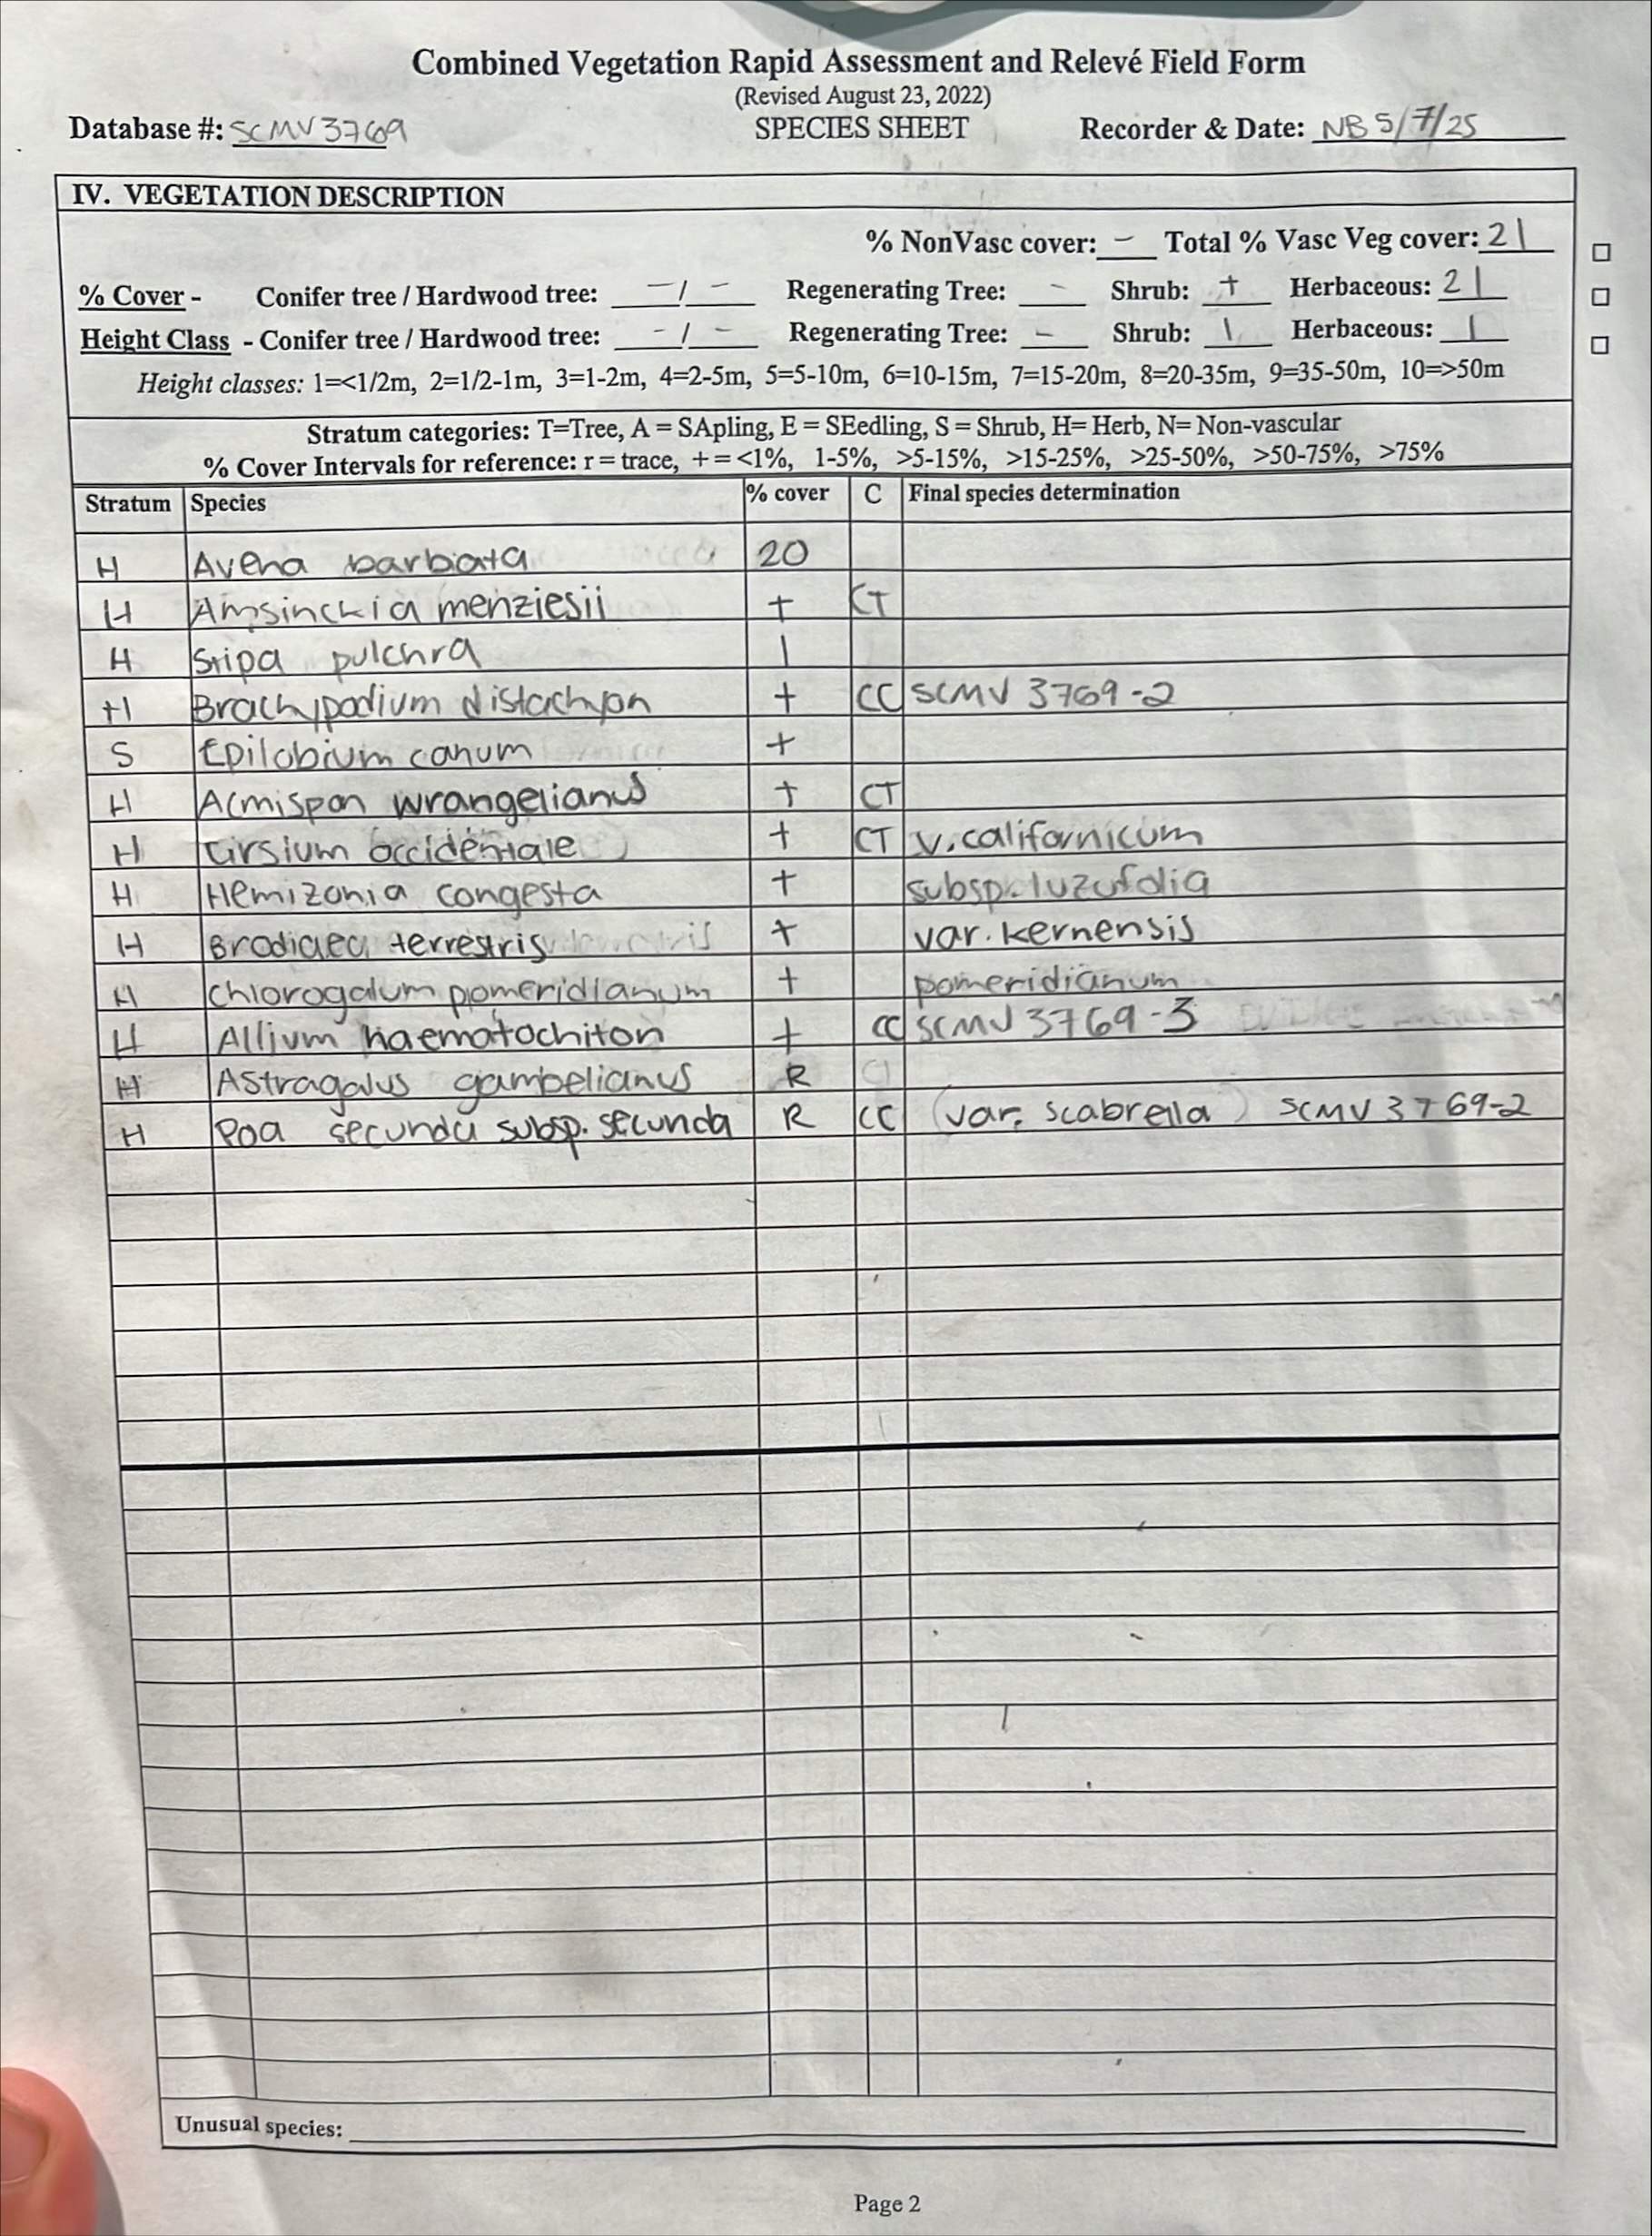 Combined Vegetation Rapid Assessment and Relevé Field Form
(Revised August 23, 2022)
Database #: SCMV3769 SPECIES SHEET Recorder & Date: NB 5/7/25
IV. VEGETATION DESCRIPTION
% NonVasc cover: - Total % Vasc Veg cover: 21
% Cover - Conifer tree / Hardwood tree: - / - Regenerating Tree: - Shrub: + Herbaceous: 21
Height Class - Conifer tree / Hardwood tree: - / - Regenerating Tree: - Shrub: 1 Herbaceous: 1
Height classes: 1=<1/2m, 2=1/2-1m, 3=1-2m, 4=2-5m, 5=5-10m, 6=10-15m, 7=15-20m, 8=20-35m, 9=35-50m, 10=>50m
Stratum categories: T=Tree, A = SApling, E = SEedling, S = Shrub, H= Herb, N= Non-vascular
% Cover Intervals for reference: r = trace, + = <1%, 1-5%, >5-15%, >15-25%, >25-50%, >50-75%, >75%
Stratum Species % cover C Final species determination
H Avena barbata 20
H Amsinckia menziesii + CT
H Stipa pulchra 1
H Brachypodium distachyon + CC SCMV 3769-2
S Epilobium canum +
H Acmispon wrangelianus + CT
H Cirsium occidentale + CT v. californicum
H Hemizonia congesta + subsp. luzufolia
H Brodiaea terrestris + var. kernensis
H Chlorogalum pomeridianum + pomeridianum
H Allium haematochiton + CC SCMV 3769-3
H Astragalus gambelianus R
H Poa secunda subsp. secunda R CC (var. scabrella) SCMV 3769-2
Unusual species:
Page 2